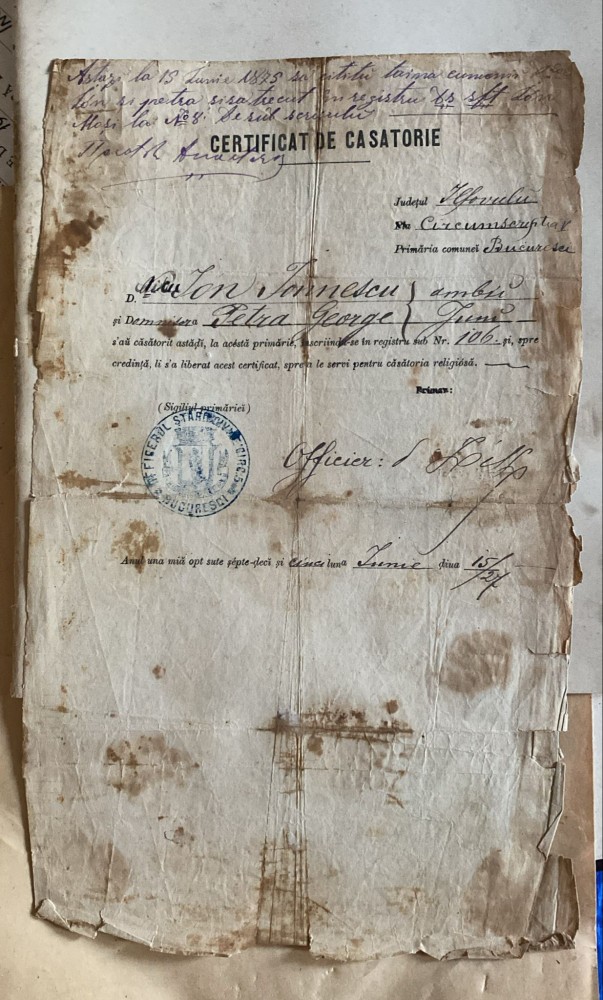 Astazi la 15 Iunie 1875 sa cititu taina cununii
Ion si petra sisa trecut in registru sft Ion
Mosi la No 8
CERTIFICAT DE CASATORIE
Județul Ilfovulŭ
Circumscripția
Primăria comunei Bucuresci
D. Nicu Ion Ionnescu } ambii
și Domnișora Petra George } Juni
s'aŭ căsătorit astăḑi, la acéstă primărie, înscriindu-se în registru sub Nr. 106. și, spre
credință, li s'a liberat acest certificat, spre a le servi pentru căsătoria religiósă.
Primar:
(Sigiliul primăriei)
OFFICERUL STAREI CIVILE CIRC. 5
BUCURESCI
Officier:
Anul una miă opt sute șépte-ḑecĭ și cinci luna Iunie ḑiua 15/27